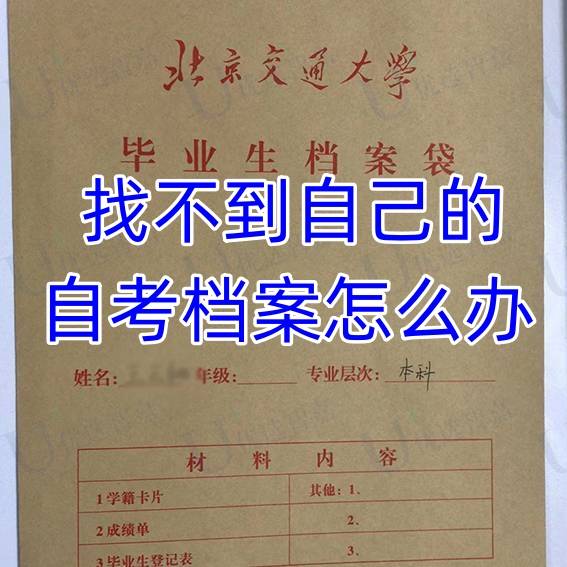 北京交通大學
毕业生档案袋
找不到自己的
自考档案怎么办
姓名: 年级: 专业层次: 本科
材料内容
1学籍卡片 其他：1、
2成绩单 2、
3毕业生登记表 3、